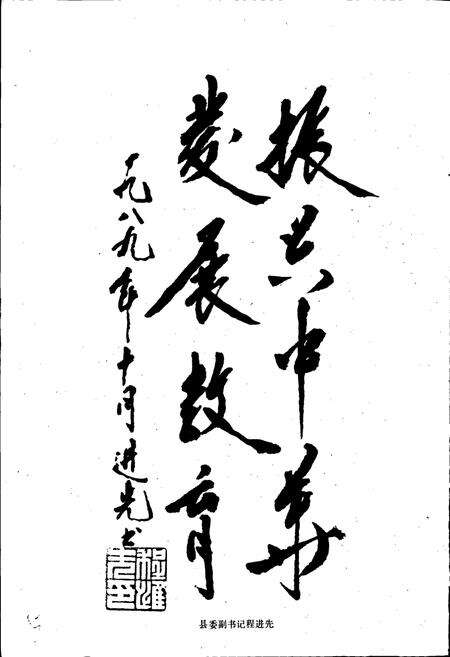 振兴中华
发展教育
一九八九年十月进先书
程进先印
县委副书记程进先